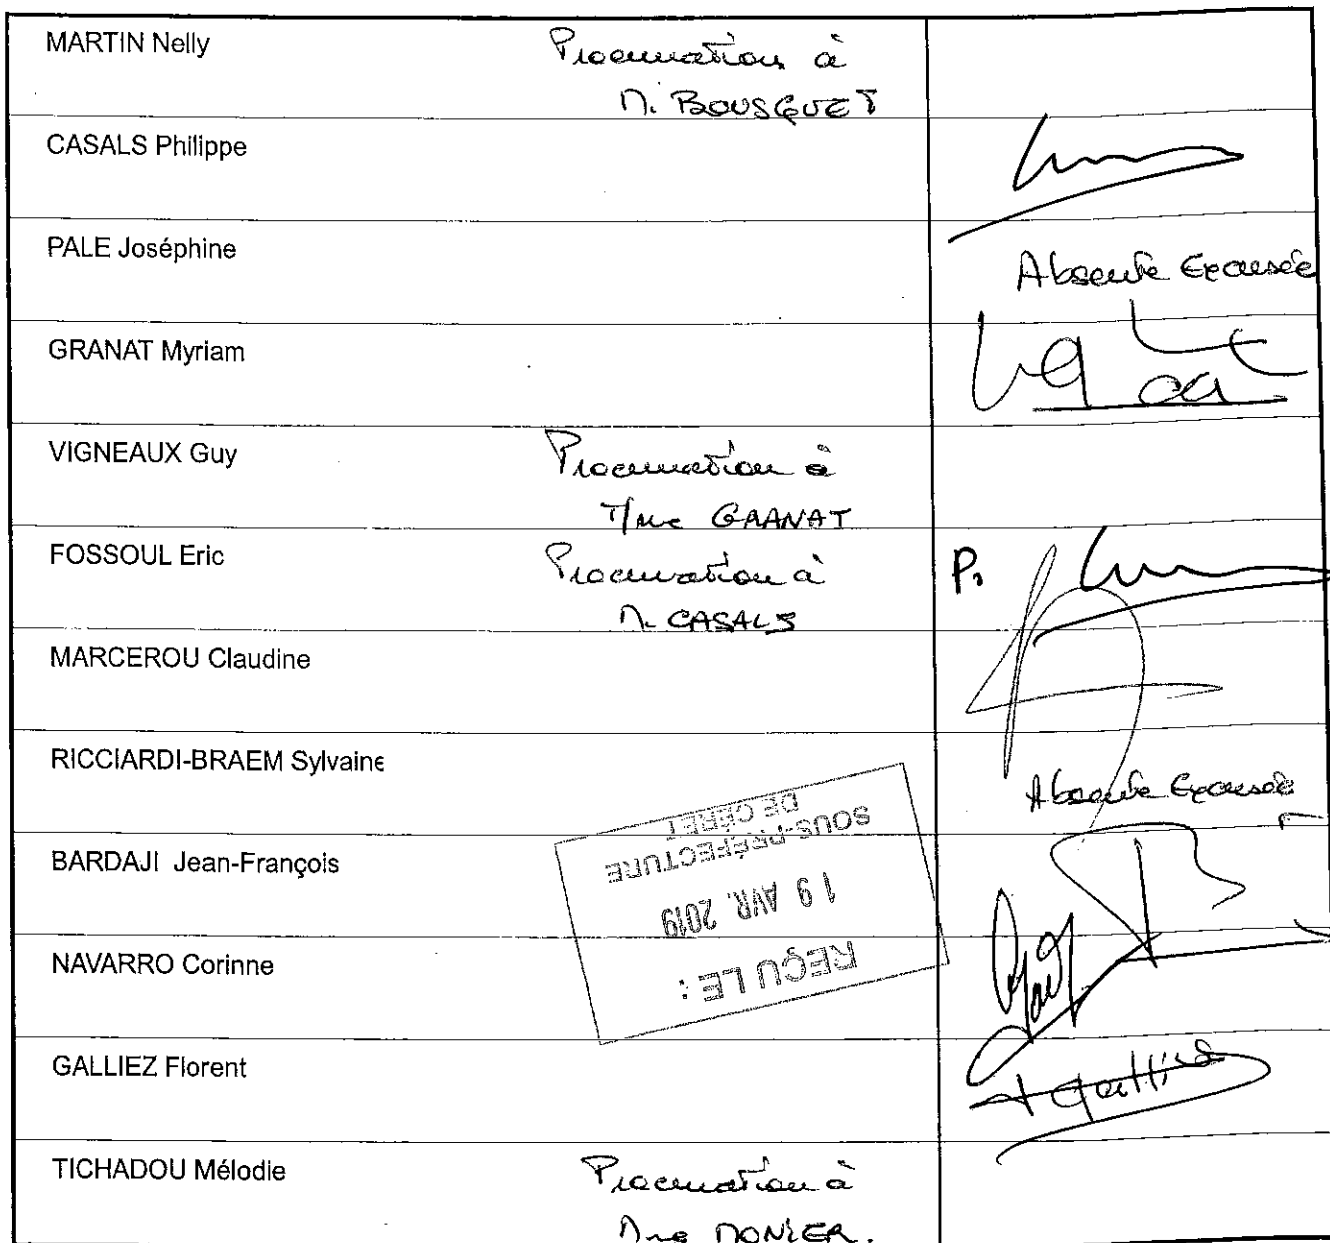 MARTIN Nelly
Procuration à
M. BOUSQUET
CASALS Philippe
PALE Joséphine
Absente Excusée
GRANAT Myriam
VIGNEAUX Guy
Procuration à
Mme GRANAT
FOSSOUL Eric
Procuration à
M. CASALS
P.
MARCEROU Claudine
RICCIARDI-BRAEM Sylvaine
Absente Excusée
BARDAJI Jean-François
NAVARRO Corinne
REÇU LE :
19 AVR. 2019
SOUS-PRÉFECTURE
DE CÉRET
GALLIEZ Florent
TICHADOU Mélodie
Procuration à
Mme MONIER.